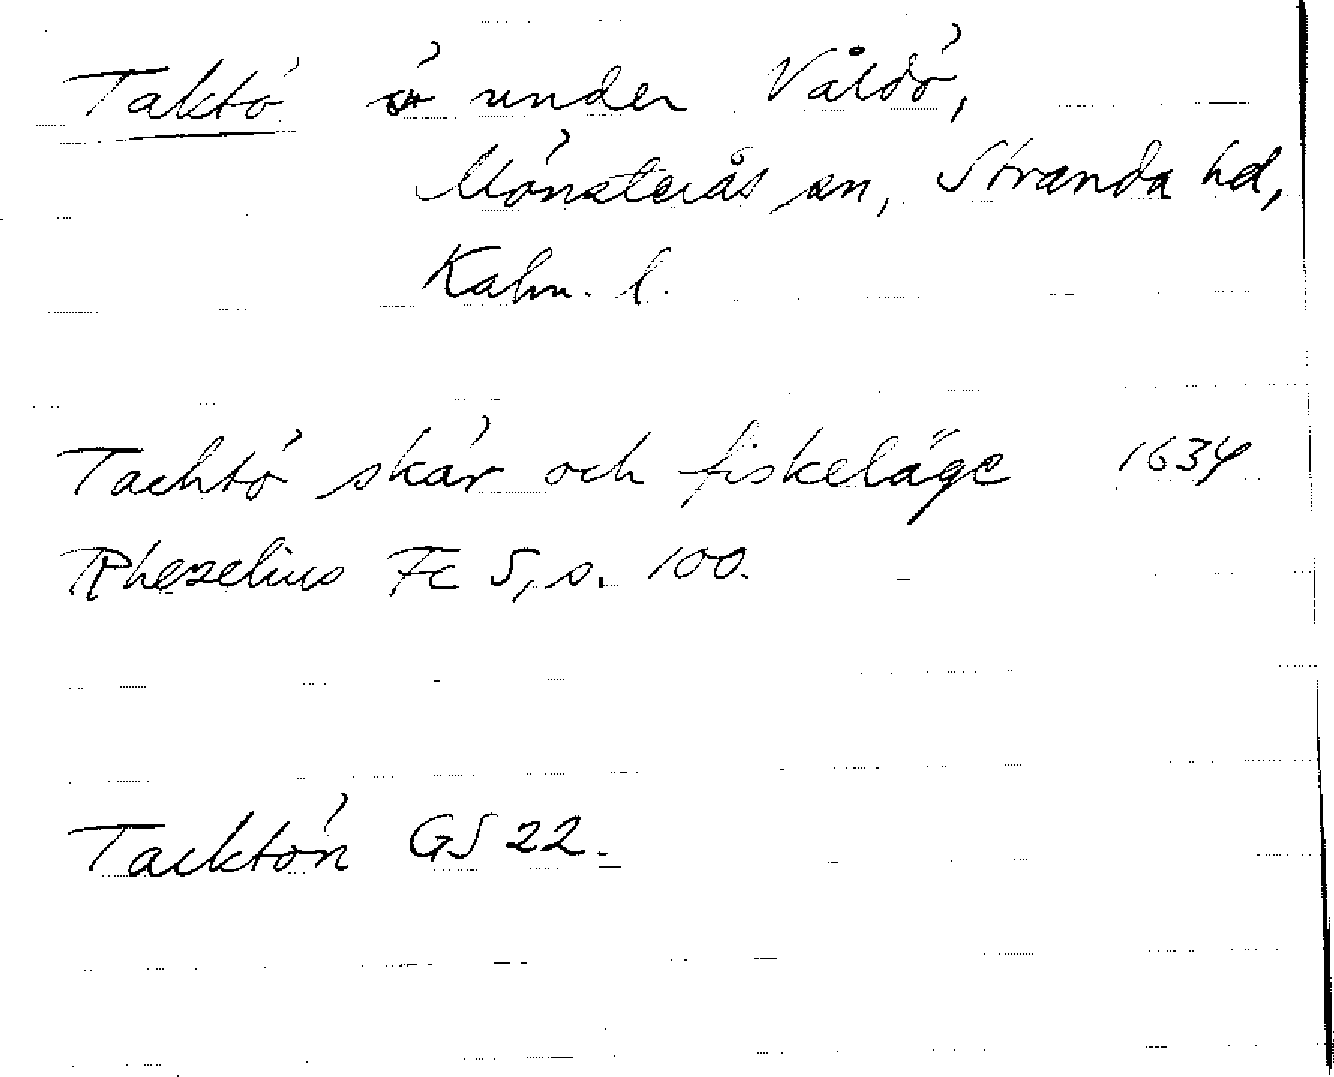 Taktö ö under Våldö,
Mönsterås sn, Stranda hd,
Kalm. l.
Tachtö skär och fiskeläge 1634
Rhezelius FC 5, s. 100.
Tacktön GS 22.